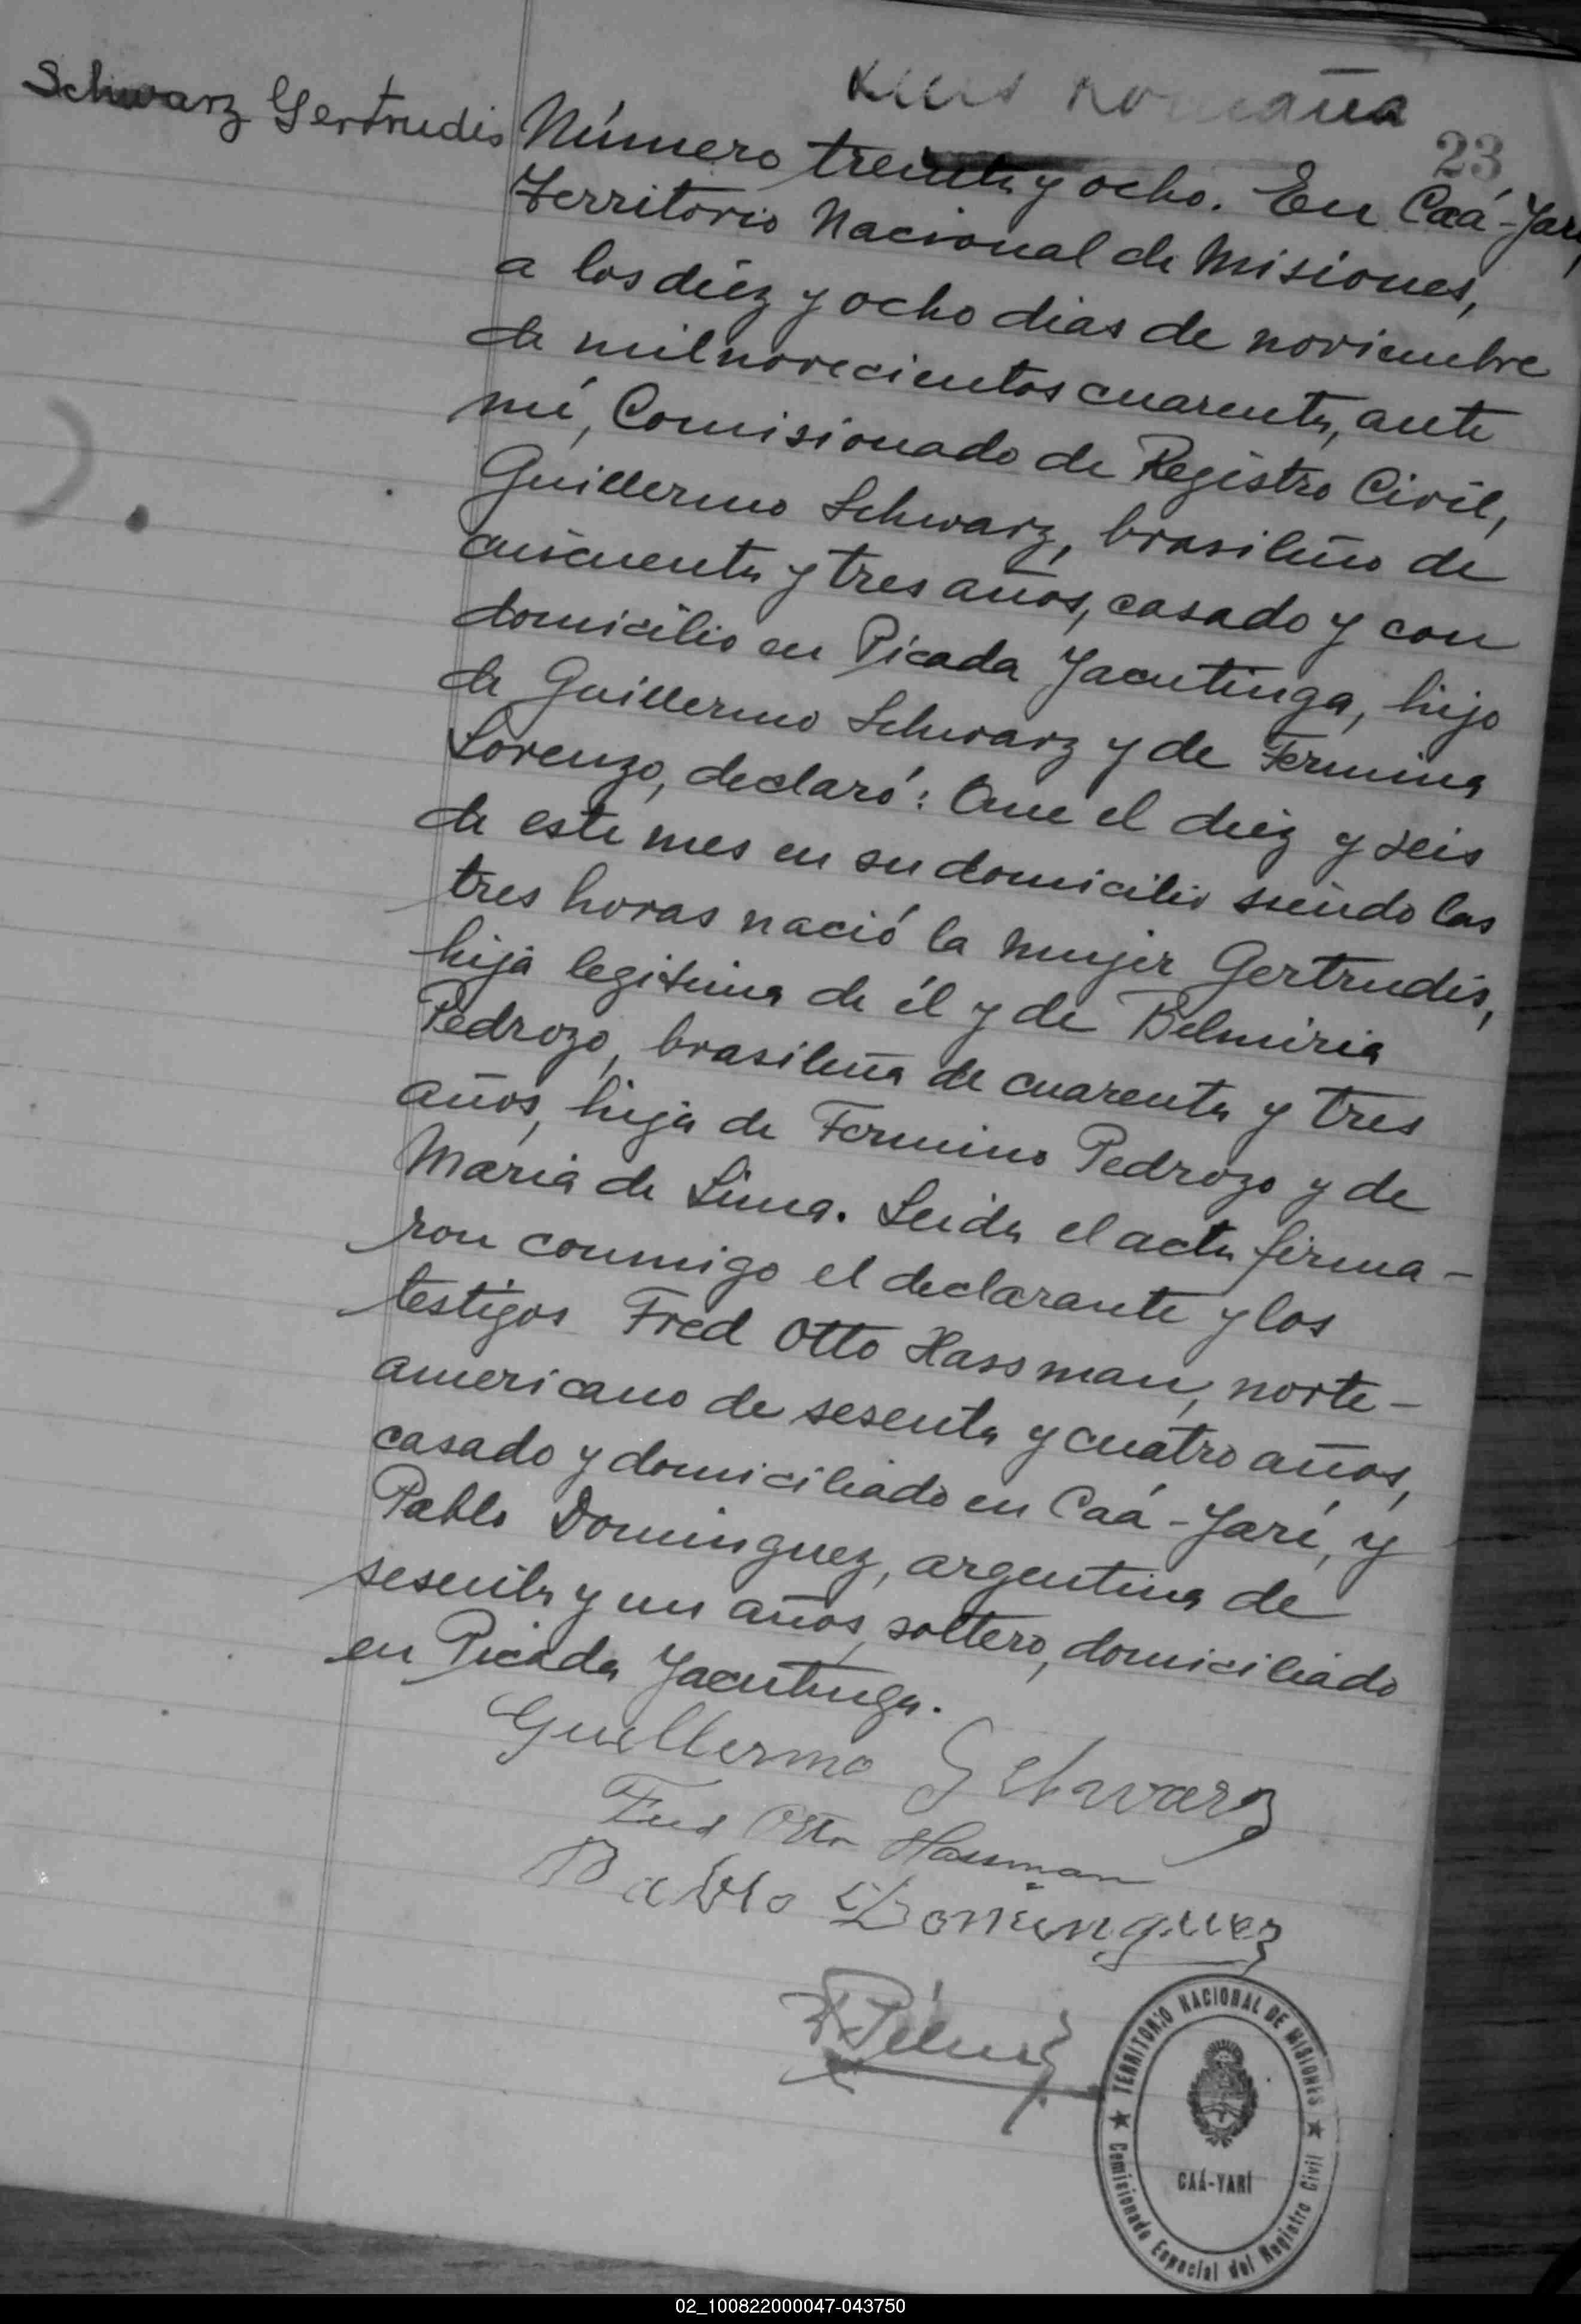 Schwarz Gertrudis
23
Número treinta y ocho. En Caá-Yarí,
Territorio Nacional de Misiones,
a los diéz y ocho dias de noviembre
de mil novecientos cuarenta, ante
mí, Comisionado de Registro Civil,
Guillermo Schwarz, brasileño de
cincuenta y tres años, casado y con
domicilio en Picada Yacutinga, hijo
de Guillermo Schwarz y de Fermina
Lorenzo, declaró: Que el diéz y seis
de este mes en su domicilio siendo las
tres horas nació la mujer Gertrudis,
hija legitima de él y de Belmiria
Pedrozo, brasileña de cuarenta y tres
años, hija de Fermino Pedrozo y de
María de Lima. Leida el acta firma-
ron conmigo el declarante y los
testigos Fred Otto Hassman, norte-
americano de sesenta y cuatro años,
casado y domiciliado en Caá-Yarí, y
Pablo Dominguez, argentino de
sesenta y un años, soltero, domiciliado
en Picada Yacutinga.
Guillermo Schwarz
Fred Otto Hassman
Pablo Dominguez
TERRITORIO NACIONAL DE MISIONES
CAÁ-YARÍ
Comisionado Especial del Registro Civil
02_100822000047-043750